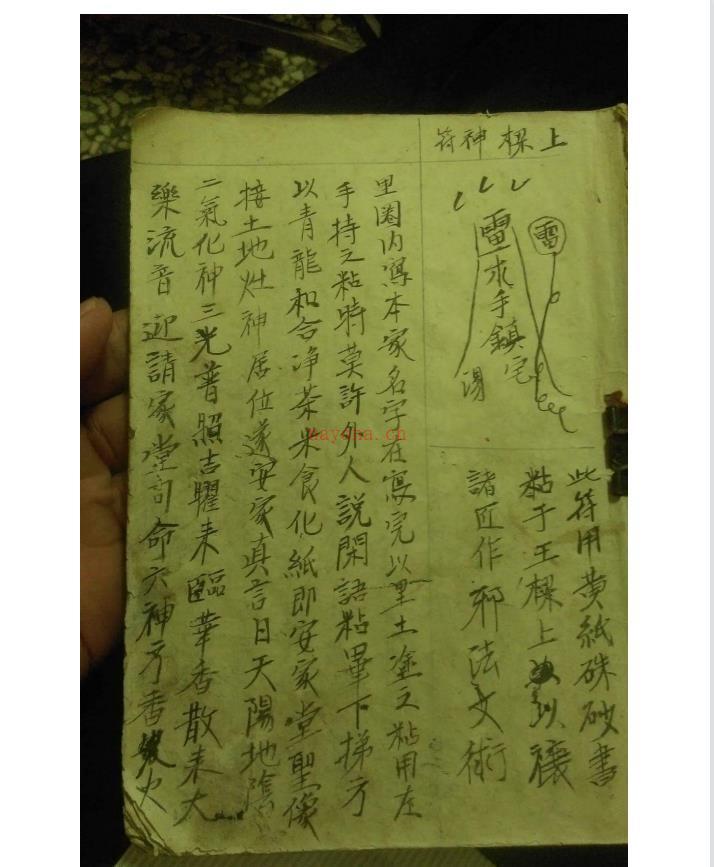 上樑神符
雷
雷永手鎮宅
湯
此符用黄紙硃砂書
粘于王樑上以禳
諸匠作邪法文術
里圈内寫本家名字在寫完以里土塗之粘用左
手持之粘時莫許外人説閑語粘畢下梯方
以青龍和合净茶米食化紙即安家堂聖像
接土地灶神居位遂安家真言日天陽地陰
二氣化神三光普照吉耀来臨華香散来大
樂流音迎請家堂司命六神方香火
mayona.cn